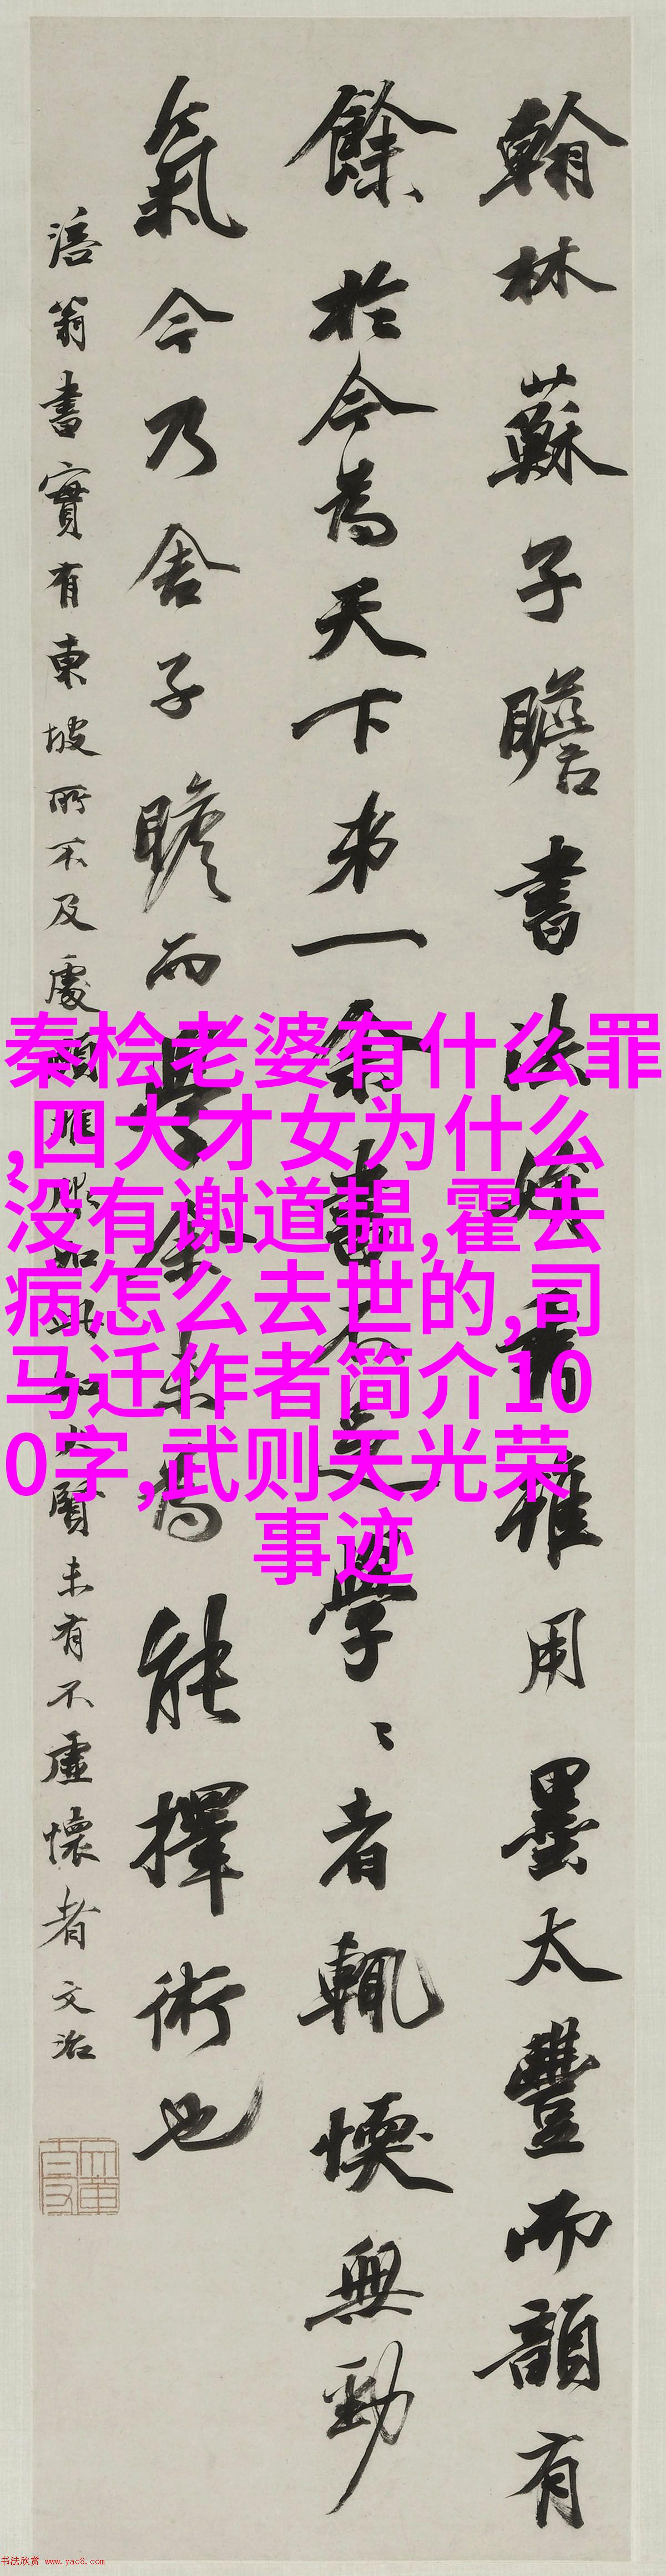 翰林蘇子瞻書法娟秀雖用墨太豐而韻有
餘於今為天下第一余書不足學〻者輒愞無勁
氣今乃舍子瞻而學余未為能擇術也
涪翁書實有東坡所不及處顧推服如此知大賢未有不虛懷者文治
秦桧老婆有什么罪
,四大才女为什么
没有谢道韫,霍去
病怎么去世的,司
马迁作者简介10
0字,武则天光荣
事迹
书法欣赏 www.yac8.com